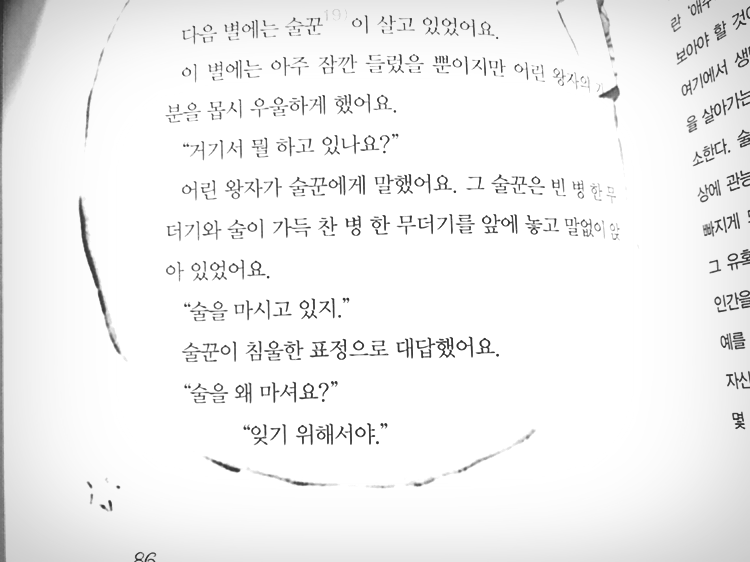 다음 별에는 술꾼19)이 살고 있었어요.
이 별에는 아주 잠깐 들렀을 뿐이지만 어린 왕자의 기
분을 몹시 우울하게 했어요.
“거기서 뭘 하고 있나요?”
어린 왕자가 술꾼에게 말했어요. 그 술꾼은 빈 병 한 무
더기와 술이 가득 찬 병 한 무더기를 앞에 놓고 말없이 앉
아 있었어요.
“술을 마시고 있지.”
술꾼이 침울한 표정으로 대답했어요.
“술을 왜 마셔요?”
“잊기 위해서야.”
86
보아야 할 것이
여기에서 생
을 살아가는
소한다. 술
상에 관능
빠지게
그 유혹
인간을
예를
자신
몇